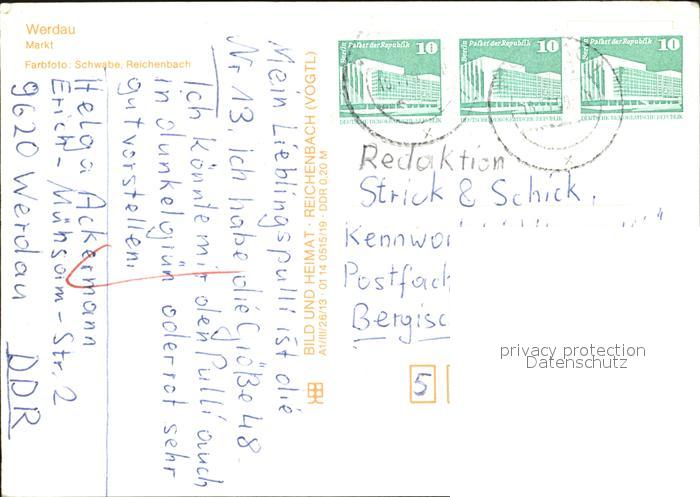 Werdau
Markt
Farbfoto: Schwabe, Reichenbach
Mein Lieblingspulli ist die
Nr 13, ich habe die Größe 48.
Ich könnte mir den Pulli auch
in dunkelgrün oder rot sehr
gut vorstellen.
Helga Ackermann
Erich-Mühsam-Str. 2
9620 Werdau DDR
BILD UND HEIMAT · REICHENBACH (VOGTL)
A1/III/26/13 · 01 14 0515/19 · DDR 0,20 M
Berlin Palast der Republik 10
DEUTSCHE DEMOKRATISCHE REPUBLIK
Berlin Palast der Republik 10
DEUTSCHE DEMOKRATISCHE REPUBLIK
Berlin Palast der Republik 10
DEUTSCHE DEMOKRATISCHE REPUBLIK
Redaktion
Strick & Schick,
Kennwo
Postfach
Bergisc
5
privacy protection
Datenschutz